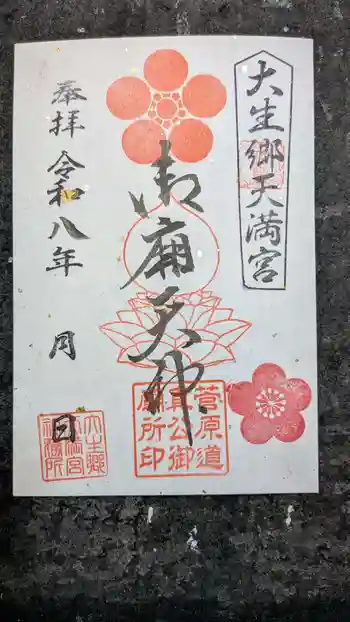 大生郷天満宮
御廟天神
菅原道
真公御
廟所印
奉拝 令和八年 月 日